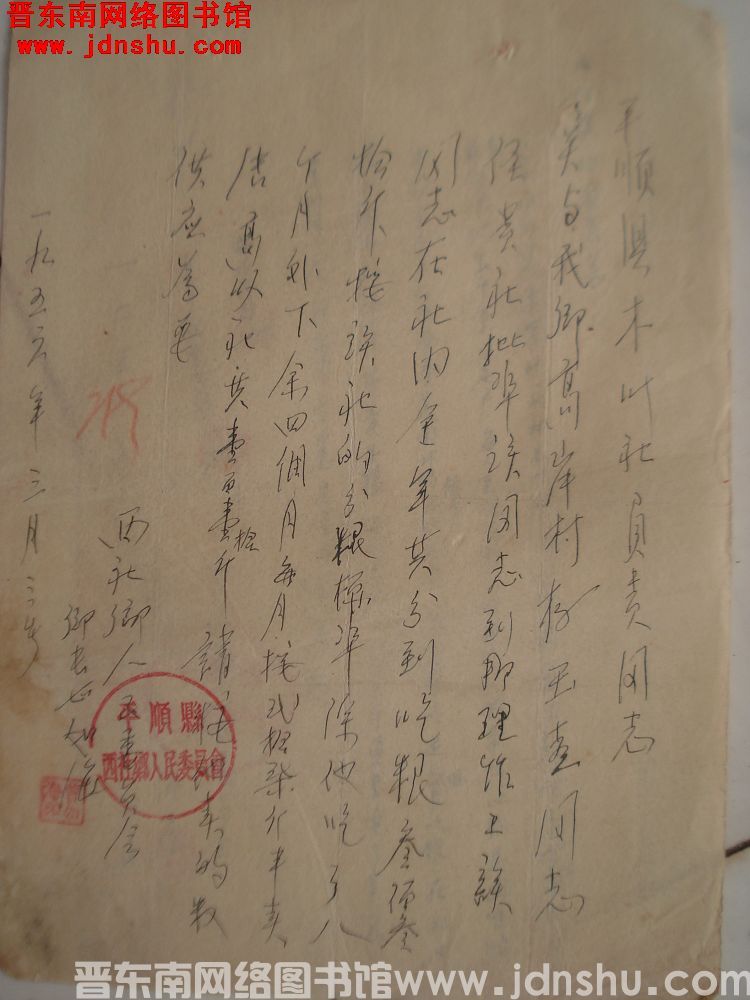 晋东南网络图书馆
www.jdnshu.com
平順県木业社員責同志
与我鄉髙岸村 玉 同志
経貴社批準該同志到那理作工該
同志在社内全年共分到吃粮叁佰叁
拾斤 按該社的分粮標準除他吃了八
个月外下余四個月每月按弍拾柒斤半
髙 社共壹百壹拾斤 請 的数
供应為要
西社鄉人民委員会
鄉長
一九五六年三月三号
平順縣
西社鄉人民委員會
晋东南网络图书馆www.jdnshu.com